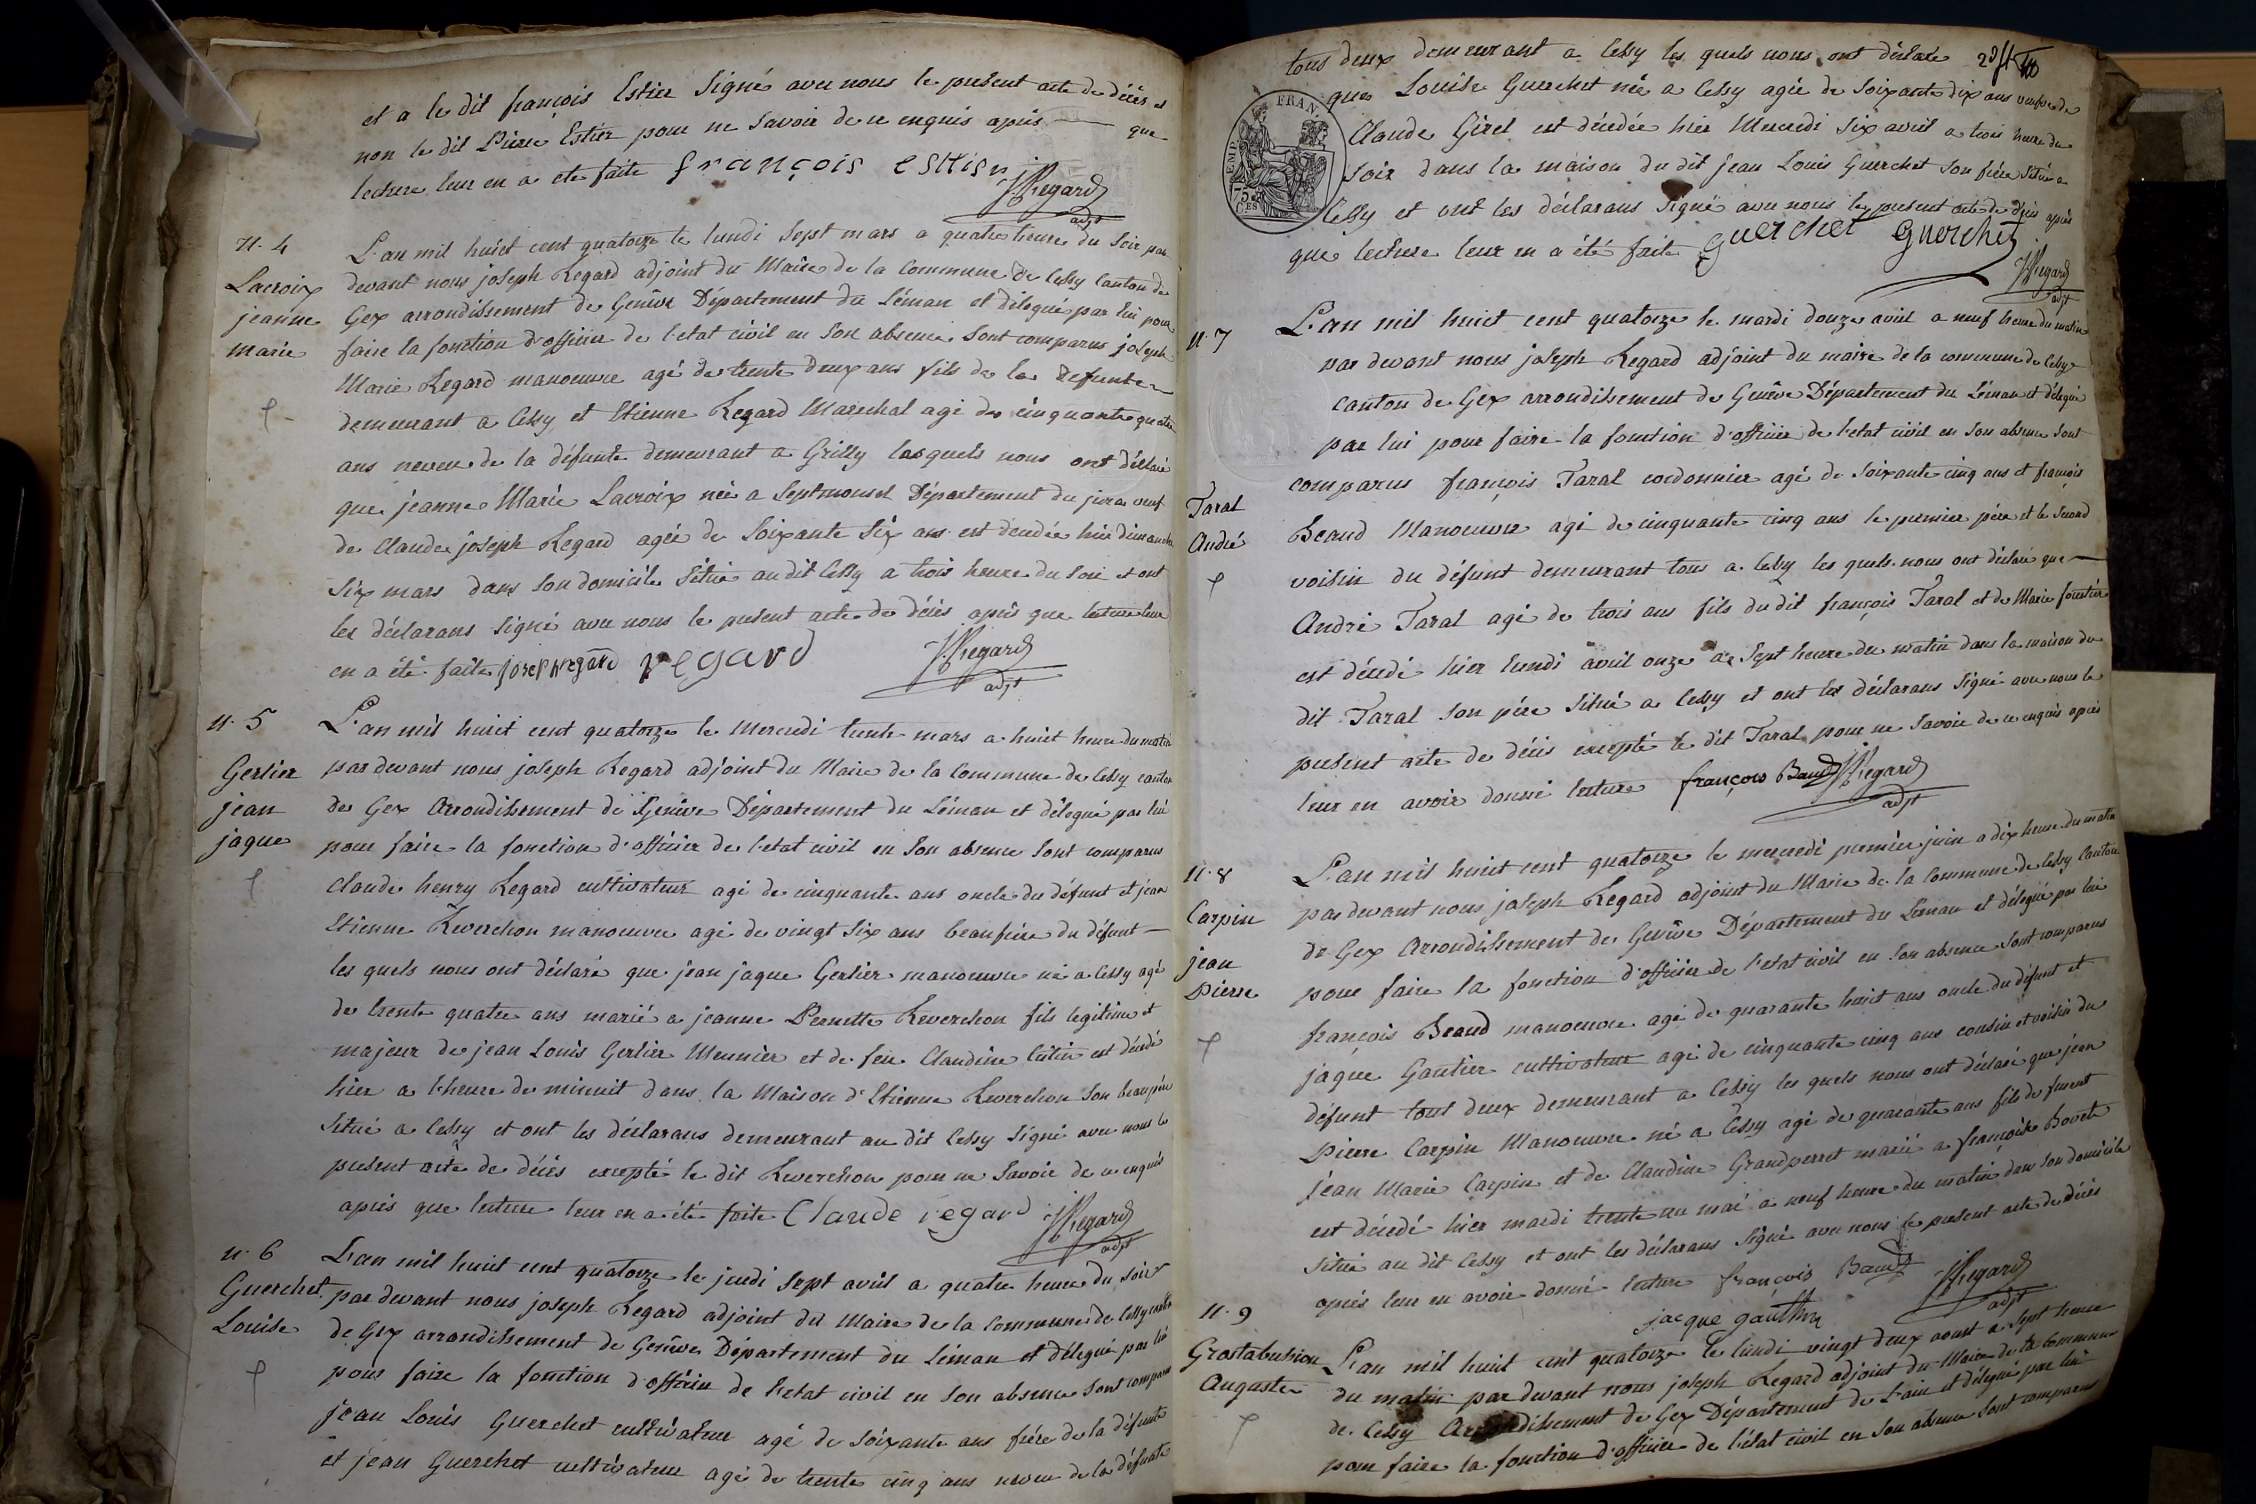 et a le dit françois Estier Signé avec nous le présent acte de décès et
non le dit Pierre Estier pour ne Savoir de ce enquis après que
lecture leur en a été faite françois esttier
JRegard
adjt
N. 4
Lacroix
jeanne
marie
L'an mil huict cent quatorze le lundi Sept mars a quatre heure du Soir par
devant nous joseph Regard adjoint du Maire de la Commune de Cessy Canton de
Gex arrondissement de Genêve Département du Léman et délegué par lui pour
faire la fonction d'officier de l'etat civil en Son absence Sont comparus joseph
Marie Regard manoeuvre agé de trente Deux ans fils de la Defunte
demeurant a Cessy et Etienne Regard Marechal agé de cinquante quatre
ans neveu de la défunte demeurant a Grilly lesquels nous ont déclaré
que jeanne Marie Lacroix née a Septmoncel Département du jura veuf
de Claude joseph Regard agée de Soixante Six ans est décedée hier dimanche
Six mars dans Son domicile Situé au dit Cessy a trois heure du Soir et ont
les déclarans Signé avec nous le présent acte de décès après que lecture leur
en a été faite joseph regard regard JRegard
adjt
N. 5
Gerlier
jean
jaque
L'an mil huict cent quatorze le Mercredi trente mars a huict heure du matin
par devant nous joseph Regard adjoint du Maire de la Commune de Cessy canton
de Gex Arrondissement de Genêve Département du Léman et délegué par lui
pour faire la fonction d'officier de l'etat civil en Son absence Sont comparus
Claude henry Regard cultivateur agé de cinquante ans oncle du défunt et jean
Etienne Reverchon manoeuvre agé de vingt Six ans beaufrère du défunt
les quels nous ont déclaré que jean jaque Gerlier manoeuvre né a Cessy agé
de trente quatre ans marié a jeanne Pernette Reverchon fils legitime et
majeur de jean Louis Gerlier Meunier et de feu Claudine est décedé
hier a l'heure de minuit dans la Maison d'Etienne Reverchon Son beaupère
Situé a Cessy et ont les déclarans demeurant au dit Cessy Signé avec nous le
présent acte de décès excepté le dit Reverchon pour ne Savoir de ce enquis
après que lecture leur en a été faite Claude regard JRegard
adjt
N. 6
Guerchet
Louise
L'an mil huict cent quatorze le jeudi Sept avril a quatre heure du Soir
par devant nous joseph Regard adjoint du Maire de la Commune de Cessy canton
de Gex arrondissement de Genêve Département du Léman et délegué par lui
pour faire la fonction d'officier de l'etat civil en Son absence Sont comparus
jean Louis Guerchet cultivateur agé de Soixante ans frère de la défunte
et jean Guerchet cultivateur agé de trente cinq ans neveu de la défunte
tous deux demeurant a Cessy les quels nous ont déclaré
que Louise Guerchet née a Cessy agée de Soixante dix ans veufve de
Claude Girel est décedée hier Mercredi Six avril a trois heure du
Soir dans la maison du dit jean Louis Guerchet Son frère Située a
Cessy et ont les déclarans Signé avec nous le present acte de décès après
que lecture leur en a été faite Guerchet Guerchet
JRegard
adjt
FRAN
75
CES
N. 7
Taral
André
L'an mil huict cent quatorze le mardi douze avril a neuf heure du matin
par devant nous joseph Regard adjoint du maire de la commune de Cessy
canton de Gex arrondissement de Genêve Département du Léman et délegué
par lui pour faire la fonction d'officier de l'etat civil en Son absence Sont
comparus françois Taral cordonnier agé de Soixante cinq ans et françois
Beaud Manoeuvre agé de cinquante cinq ans le premier père et le Second
voisin du défunt demeurant tous a Cessy les quels nous ont déclaré que
André Taral agé de trois ans fils du dit françois Taral et de Marie forestier
est décedé hier lundi avril onze a Sept heure du matin dans la maison du
dit Taral Son père Situé a Cessy et ont les déclarans Signé avec nous le
présent acte de décès excepté le dit Taral pour ne Savoir de ce enquis après
leur en avoir donné lecture françois Baud JRegard
adjt
N. 8
Carpin
jean
Pierre
L'an mil huict cent quatorze le mercredi premier juin a dix heure du matin
par devant nous joseph Regard adjoint du Maire de la Commune de Cessy Canton
de Gex Arrondissement de Genêve Département du Léman et délegué par lui
pour faire la fonction d'officier de l'etat civil en Son absence Sont comparus
françois Beaud manoeuvre agé de quarante huict ans oncle du défunt et
jaque Gautier cultivateur agé de cinquante cinq ans cousin et voisin du
défunt tout deux demeurant a Cessy les quels nous ont déclaré que jean
Pierre Carpin Manoeuvre né a Cessy agé de quarante ans fils de furent
jean Marie Carpin et de Claudine Grandperret marié a françoise Bovet
est décedé hier mardi trente un mai a neuf heure du matin dans Son domicile
Situé au dit Cessy et ont les déclarans Signé avec nous le présent acte de décès
après leur en avoir donné lecture françois Baud JRegard
adjt
jacque gautier
N. 9
Grostabussion
Auguste
L'an mil huict cent quatorze le lundi vingt deux aoust a Sept heure
du matin par devant nous joseph Regard adjoint du Maire de la Commune
de Cessy Arrondissement de Gex Département de L'ain et délegué par lui
pour faire la fonction d'officier de l'etat civil en Son absence Sont comparus